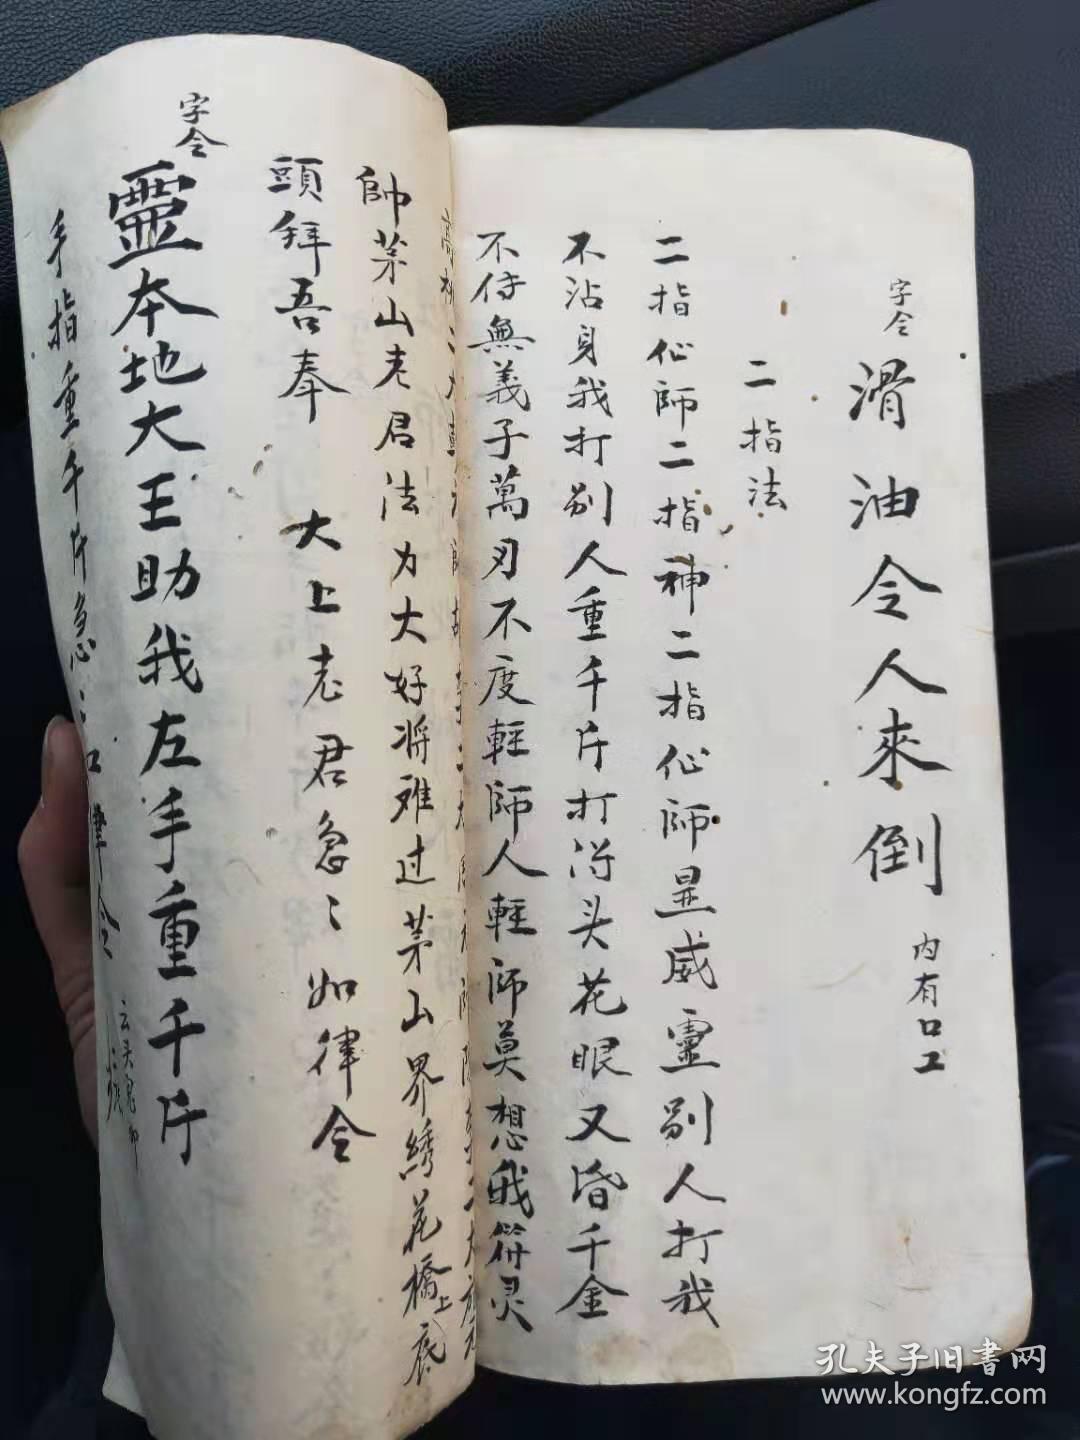 字令
滑油令人來倒 内有口工
二指法
二指仙師二指神二指仙師显威靈别人打我
不沾身我打别人重千斤打得头花眼又昏千金
不传無義子萬刃不度輕師人輕師莫想我符灵
帥茅山老君法力大好将难过茅山界绣花橋上底
頭拜吾奉 大上老君急〻如律令
字令
靈本地大王助我左手重千斤
手指重千斤急〻
孔夫子旧書网
www.kongfz.com